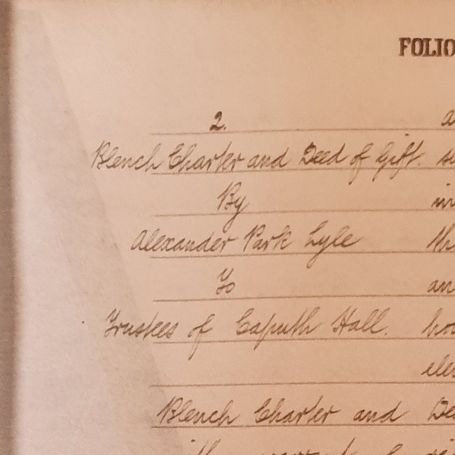 FOLIO
2.
Blench Charter and Deed of Gift.
By
Alexander Park Lyle
To
Trustees of Caputh Hall.
Blench Charter and